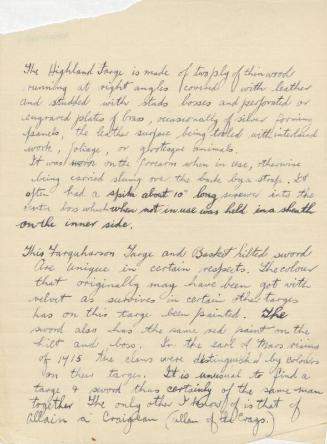 The Highland Targe is made of two ply of thin wood
running at right angles covered with leather
and studded with studs bosses and perforated or
engraved plates of brass, occasionally of silver forming
panels, the leather surface being tooled with interlaced
work, foliage, or grotesque animals.
It was worn on the forearm when in use, otherwise
being carried slung over the back by a strap. It
often had a spike about 10" long screwed into the
centre boss which when not in use was held in a sheath
on the inner side.
This Farquharson Targe and Basket hilted sword
are unique in certain respects. The colour
that originally may have been got with
velvet as survives in certain other targes
has on this targe been painted. The
sword also has the same red paint on the
hilt and boss. In the Earl of Mars rising
of 1715 the clans were distinguished by colours
on their targes. It is unusual to find a
targe & sword thus certainly of the same man
together. The only other I know of is that of
a Craigean (Allan of the Crags).